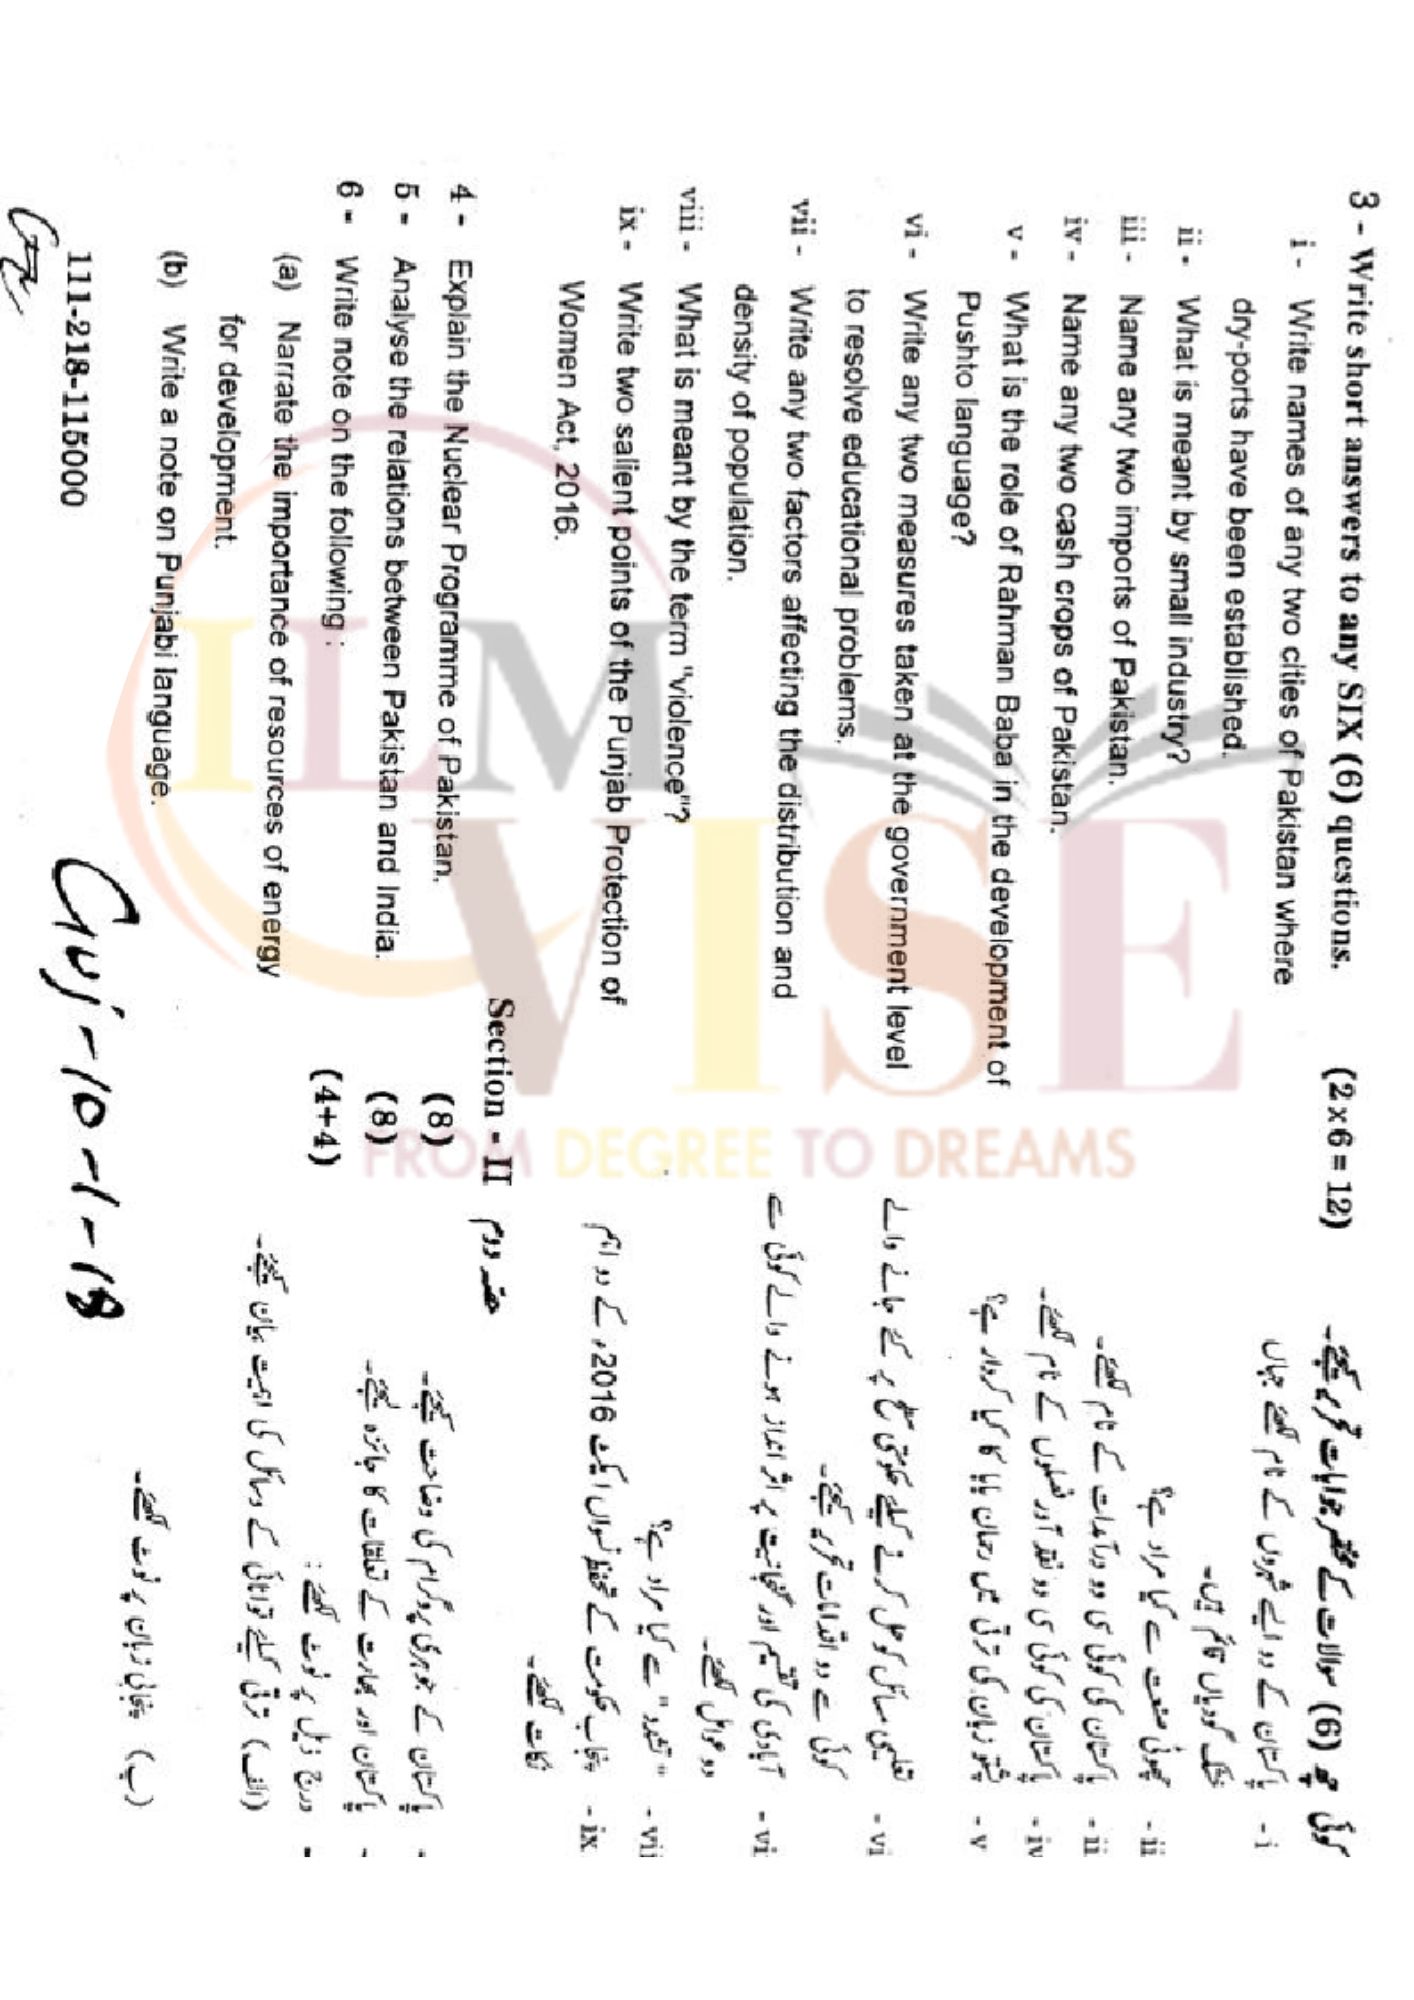 3 - Write short answers to any SIX (6) questions. (2 x 6 = 12)
i - Write names of any two cities of Pakistan where
dry-ports have been established.
ii - What is meant by small industry?
iii - Name any two imports of Pakistan.
iv - Name any two cash crops of Pakistan.
v - What is the role of Rahman Baba in the development of
Pushto language?
vi - Write any two measures taken at the government level
to resolve educational problems.
vii - Write any two factors affecting the distribution and
density of population.
viii - What is meant by the term "violence"?
ix - Write two salient points of the Punjab Protection of
Women Act, 2016.
Section - II حصہ دوم
4 - Explain the Nuclear Programme of Pakistan. (8)
5 - Analyse the relations between Pakistan and India. (8)
6 - Write note on the following : (4+4)
(a) Narrate the importance of resources of energy
for development.
(b) Write a note on Punjabi language.
111-218-115000
Guj-10-1-18
کوئی سے چھ (6) سوالات کے مختصر جوابات تحریر کیجئے۔
i - پاکستان کے دو ایسے شہروں کے نام لکھئے جہاں
خشک گودیاں قائم ہیں۔
ii - چھوٹی صنعت سے کیا مراد ہے؟
ii - پاکستان کی کوئی سی دو درآمدات کے نام لکھئے۔
iv - پاکستان کی کوئی سی دو نقد آور فصلوں کے نام لکھئے۔
v - پشتو زبان کی ترقی میں رحمان بابا کا کیا کردار ہے؟
vi - تعلیمی مسائل کو حل کرنے کیلئے حکومتی سطح پر کئے جانے والے
کوئی سے دو اقدامات تحریر کیجئے۔
vi - آبادی کی تقسیم اور گنجانیت پر اثر انداز ہونے والے کوئی سے
دو عوامل لکھئے۔
vii - "تشدد" سے کیا مراد ہے؟
ix - پنجاب حکومت کے تحفظ نسواں ایکٹ 2016ء کے دو اہم
نکات لکھئے۔
- پاکستان کے جوہری پروگرام کی وضاحت کیجئے۔
- پاکستان اور بھارت کے تعلقات کا جائزہ لیجئے۔
- درج ذیل پر نوٹ لکھئے :
(الف) ترقی کیلئے توانائی کے وسائل کی اہمیت بیان کیجئے۔
(ب) پنجابی زبان پر نوٹ لکھئے۔
ILM
VISE
FROM DEGREE TO DREAMS